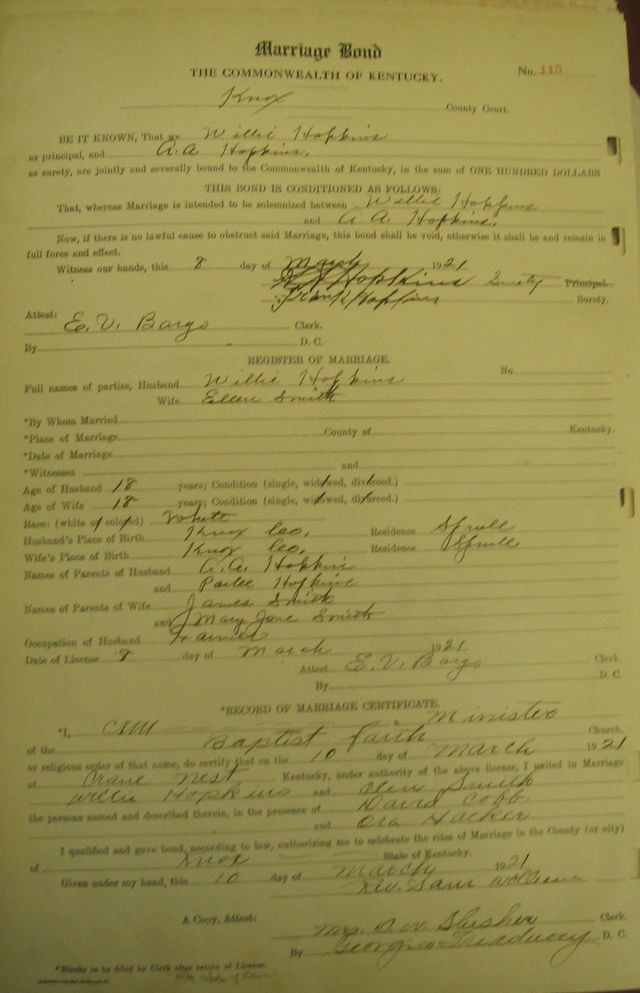 Marriage Bond
THE COMMONWEALTH OF KENTUCKY.
No. 115
Knox County Court.
BE IT KNOWN, That we Willie Hopkins
as principal, and A.A Hopkins,
as surety, are jointly and severally bound to the Commonwealth of Kentucky, in the sum of ONE HUNDRED DOLLARS
THIS BOND IS CONDITIONED AS FOLLOWS:
That, whereas Marriage is intended to be solemnized between Willie Hopkins
and A. A. Hopkins,
Now, if there is no lawful cause to obstruct said Marriage, this bond shall be void, otherwise it shall be and remain in
full force and effect.
Witness our hands, this 8 day of March 1921
Hopkins Surety Principal.
Frank Hopkins Surety.
Attest:
E. V. Bargo Clerk.
By D. C.
REGISTER OF MARRIAGE.
No.
Full names of parties, Husband Willie Hopkins
Wife Ellen Smith
*By Whom Married
*Place of Marriage County of Kentucky.
*Date of Marriage
*Witnesses and
Age of Husband 18 years; Condition (single, widowed, divorced.)
Age of Wife 18 years; Condition (single, widowed, divorced.)
Race: (white or colored) White
Husband's Place of Birth Knox Co, Residence Sprule
Wife's Place of Birth Knox Co, Residence Sprule
Names of Parents of Husband A. A. Hopkins
and Parlee Hopkins
Names of Parents of Wife James Smith
and Mary Jane Smith
Occupation of Husband Farmer
Date of License 8 day of March 1921
Attest E. V. Bargo Clerk.
By D. C.
*RECORD OF MARRIAGE CERTIFICATE.
*I, a Minister
of the Baptist Faith Church,
or religious order of that name, do certify that on the 10 day of March 1921
at Crane Nest Kentucky, under authority of the above license, I united in Marriage
Willie Hopkins and Olen Smith
the persons named and described therein, in the presence of David Cobb.
and Ora Hacker.
I qualified and gave bond, according to law, authorizing me to celebrate the rites of Marriage in the County (or city)
of Knox State of Kentucky.
Given under my hand, this 10 day of March 1921
Rev. Sam
A Copy, Attest: Mrs. D. W. Slusher Clerk.
By Georgia Treadway, D. C.
*Blanks to be filled by Clerk after return of License.